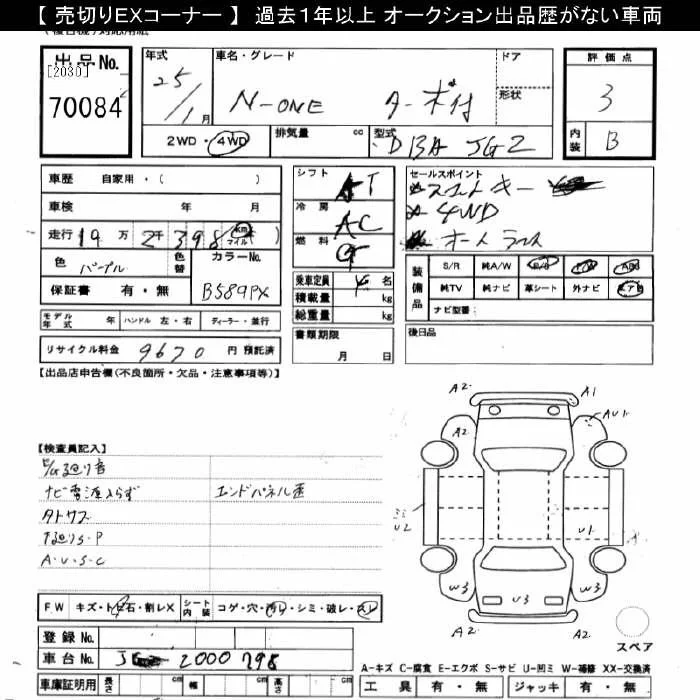 【 売切りEXコーナー 】 過去1年以上 オークション出品歴がない車両
出品No.
[2030]
70084
年式
25/1月
車名・グレード
N-ONE ターボ付
ドア
形状
評価点
3
内装
B
2WD・4WD
排気量 cc
型式 DBA JG2
車歴 自家用・( )
車検 年 月
走行 19万2千398 km マイル
色 パープル
色替
カラーNo. B589PX
保証書 有・無
シフト AT
冷房 AC
燃料 G
乗車定員 4名
積載量 kg
総重量 kg
セールスポイント
スマートキー
4WD
オートライト
装備品
S/R 純A/W P/S P/W ABS
純TV 純ナビ 革シート 外ナビ エアB
ナビ型番:
モデル年式 年 ハンドル 左・右 ディーラー・並行
リサイクル料金 9670 円 預託済
書類期限
月 日
後日品
【出品店申告欄(不良箇所・欠品・注意事項等)】
【検査員記入】
E/G廻り音
ナビ電源入らず エンドパネル歪
タトワズ
下廻りS・P
A・U・S・C
A2 A1
A2 AU1
ミミ
U2
U1
W3 W3
U3
A2 A2
FW キズ・トビ石・割レX シート内装 コゲ・穴・汚レ・シミ・破レ・スレ
登録 No.
車台 No. 2000798
車庫証明用 長さ cm 幅 cm 高さ cm
スペア
A-キズ C-腐食 E-エクボ S-サビ U-凹ミ W-補修 XX-交換済
工具 有・無 ジャッキ 有・無